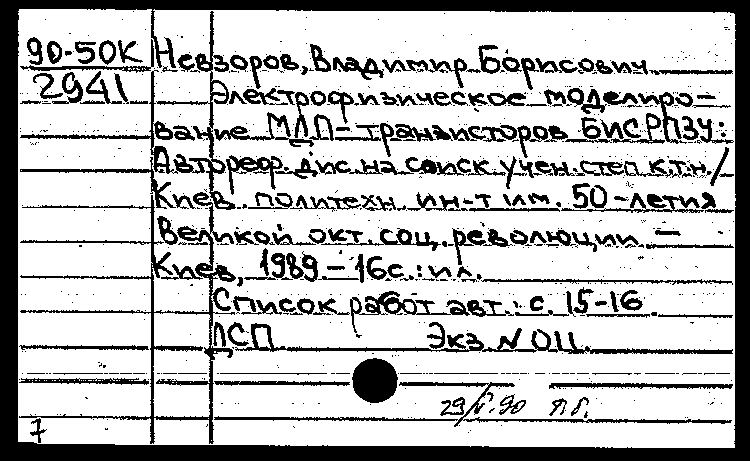 90-50К Невзоров, Владимир Борисович
2941 Электрофизическое моделиро-
вание МДП-транзисторов БИС РПЗУ:
Автореф. дис. на соиск. учен. степ. к.т.н. /
Киев. политехн. ин-т им. 50-летия
Великой окт. соц. революции. —
Киев, 1989. - 16с.: ил.
Список работ авт.: с. 15-16.
ДСП Экз. N 011.
29/V.90
7